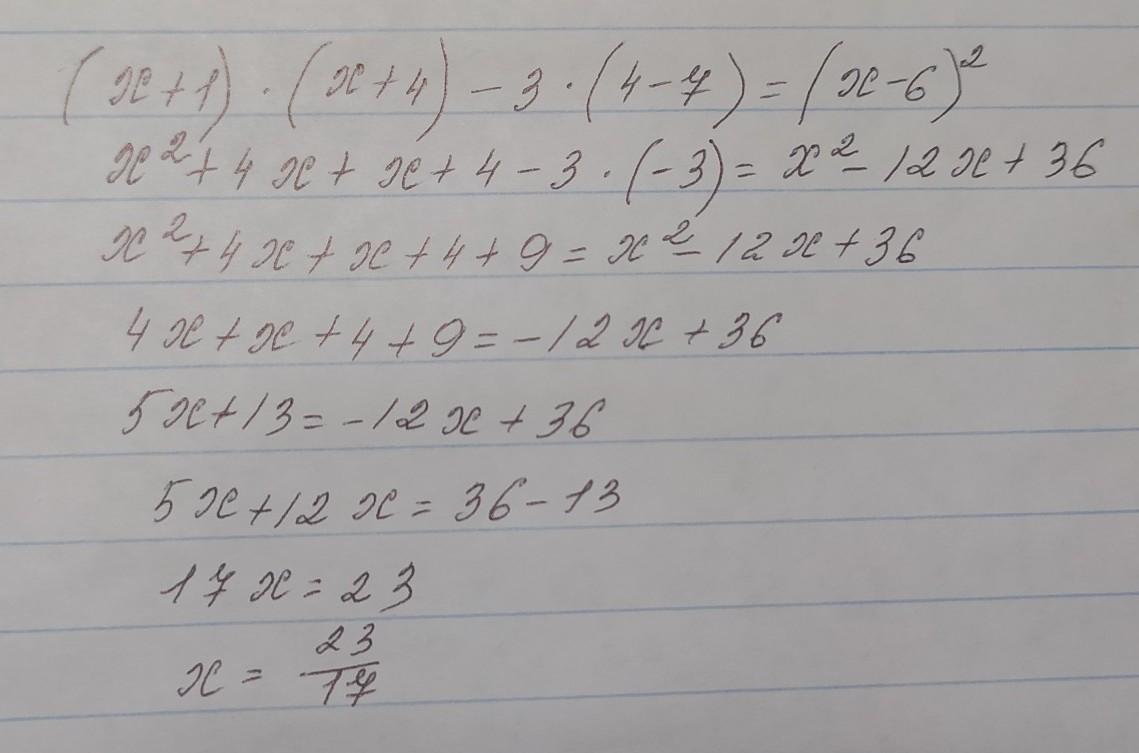 (x+1)·(x+4)-3·(4-7)=(x-6)²
x²+4x+x+4-3·(-3)=x²-12x+36
x²+4x+x+4+9=x²-12x+36
4x+x+4+9=-12x+36
5x+13=-12x+36
5x+12x=36-13
17x=23
x=23/17